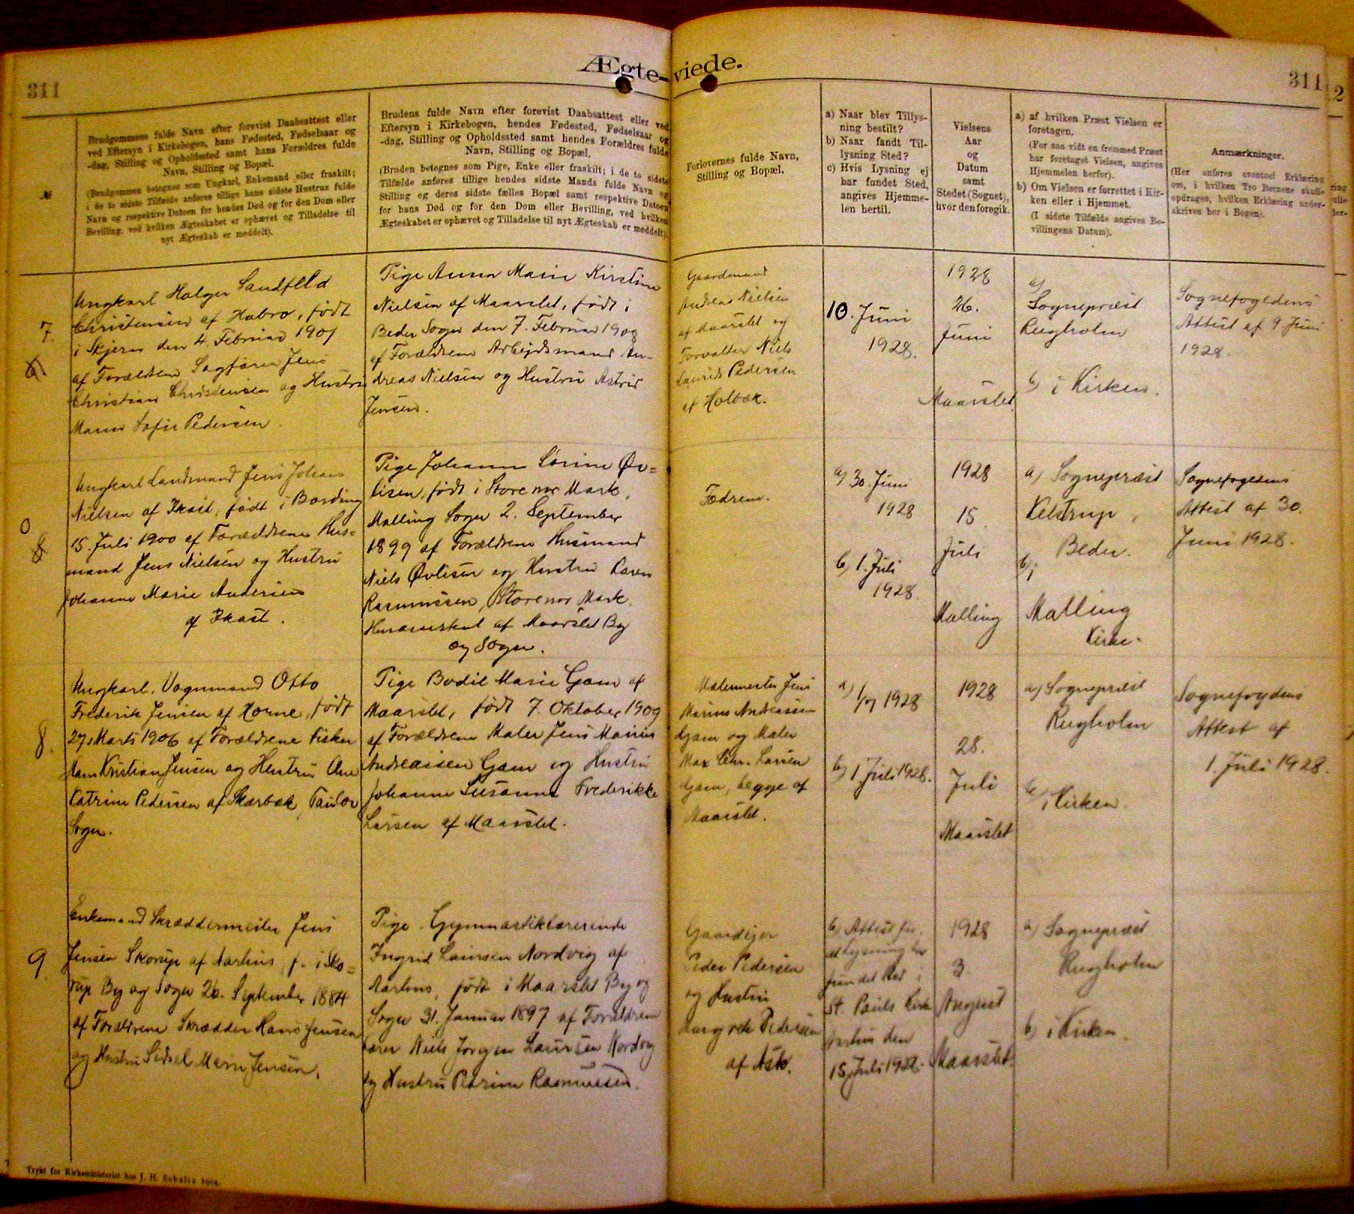 311
Ægte-viede.
311
№
Brudgommens fulde Navn efter forevist Daabsattest eller
ved Eftersyn i Kirkebogen, hans Fødested, Fødselsaar og
-dag, Stilling og Opholdssted samt hans Forældres fulde
Navn, Stilling og Bopæl.
(Brudgommen betegnes som Ungkarl, Enkemand eller fraskilt;
i de to sidste Tilfælde anføres tillige hans sidste Hustrus fulde
Navn og respektive Datoen for hendes Død og for den Dom eller
Bevilling, ved hvilken Ægteskabet er ophævet og Tilladelse til
nyt Ægteskab er meddelt).
Brudens fulde Navn efter forevist Daabsattest eller ved
Eftersyn i Kirkebogen, hendes Fødested, Fødselsaar og
-dag, Stilling og Opholdssted samt hendes Forældres fulde
Navn, Stilling og Bopæl.
(Bruden betegnes som Pige, Enke eller fraskilt; i de to sidste
Tilfælde anføres tillige hendes sidste Mands fulde Navn og
Stilling og deres sidste fælles Bopæl samt respektive Datoen
for hans Død og for den Dom eller Bevilling, ved hvilken
Ægteskabet er ophævet og Tilladelse til nyt Ægteskab er meddelt).
Forlovernes fulde Navn,
Stilling og Bopæl.
a) Naar blev Tillys-
ning bestilt?
b) Naar fandt Til-
lysning Sted?
c) Hvis Lysning ej
har fundet Sted,
angives Hjemme-
len hertil.
Vielsens
Aar
og
Datum
samt
Stedet (Sognet),
hvor den foregik.
a) af hvilken Præst Vielsen er
foretagen.
(For saa vidt en fremmed Præst
har foretaget Vielsen, angives
Hjemmelen herfor).
b) Om Vielsen er forrettet i Kir-
ken eller i Hjemmet.
(I sidste Tilfælde angives Be-
villingens Datum).
Anmærkninger.
(Her anføres eventuel Erklæring
om, i hvilken Tro Børnene skulle
opdrages, hvilken Erklæring under-
skrives her i Bogen).
7.
Ungkarl Holger Sandfeld
Christensen af Hobro, født
i Skjern den 4. Februar 1901
af Forældrene Sagfører Jens
Christian Christensen og Hustru
Maren Sofie Pedersen.
Pige Anna Marie Kirstine
Nielsen af Maarslet, født i
Beder Sogn den 7. Februar 1908
af Forældrene Arbejdsmand An-
dreas Nielsen og Hustru Astrid
Jensen.
Gaardmand
Andreas Nielsen
af Maarslet og
Forvalter Niels
Laurids Pedersen
af Holbæk.
10. Juni
1928.
1928
26.
Juni
Maarslet
a)
Sognepræst
Rugholm
b) i Kirken.
Sognefogedens
Attest af 9 Juni
1928.
0
8
Ungkarl Landmand Jens Johans
Nielsen af Ikast, født i Bording
15. Juli 1900 af Forældrene Hus-
mand Jens Nielsen og Hustru
Johanne Marie Andersen
af Ikast.
Pige Johanne Sørine Øv-
lisen, født i Storenor Mark,
Malling Sogn 2. September
1899 af Forældrene Husmand
Niels Øvlisen og Hustru Karen
Rasmussen, Storenor Mark.
af Maarslet By
og Sogn.
Fædrene.
a) 30. Juni
1928
b) 1. Juli
1928.
1928
15.
Juli
Malling
a) Sognepræst
Kelstrup,
Beder.
b) i
Malling
Kirke.
Sognefogedens
Attest af 30.
Juni 1928.
8.
Ungkarl, Vognmand Otto
Frederik Jensen af Horne, født
27. Marts 1906 af Forældrene Fisker
Hans Kristian Jensen og Hustru Ane
Katrine Pedersen af Skærbæk, Taulov
Sogn.
Pige Bodil Marie Gam af
Maarslet, født 7. Oktober 1909
af Forældrene Maler Jens Marius
Andreassen Gam og Hustru
Johanne Susanne Frederikke
Larsen af Maarslet.
Malermester Jens
Marius Andreassen
Gam og Maler
Max Chr. Larsen
Gam, begge af
Maarslet.
a) 1/7 1928
b) 1 Juli 1928.
1928
28.
Juli
Maarslet
a) Sognepræst
Rugholm
b) i Kirken.
Sognefogdens
Attest af
1. Juli 1928.
9.
Enkemand Skræddermester Jens
Jensen Skorup af Aarhus, f. i Sko-
rup By og Sogn 26. September 1884
af Forældrene Skrædder Hans Jensen
og Hustru Sidsel Marie Jensen.
Pige, Gymnastiklærerinde
Ingrid Laursen Nordvig af
Aarhus, født i Maarslet By og
Sogn 31. Januar 1897 af Forældrene
Lærer Niels Jørgen Laursen Nordvig
og Hustru Petrine Rasmussen.
Gaardejer
Peder Pedersen
og Hustru
Margrete Pedersen
af Ask.
b) Attest for,
at Lysning har
fundet Sted i
St. Pauls Kirke
Aarhus den
15 Juli 1928.
1928
3.
August
Maarslet.
a) Sognepræst
Rugholm
b) i Kirken.
Trykt for Kirkeministeriet hos J. H. Schultz